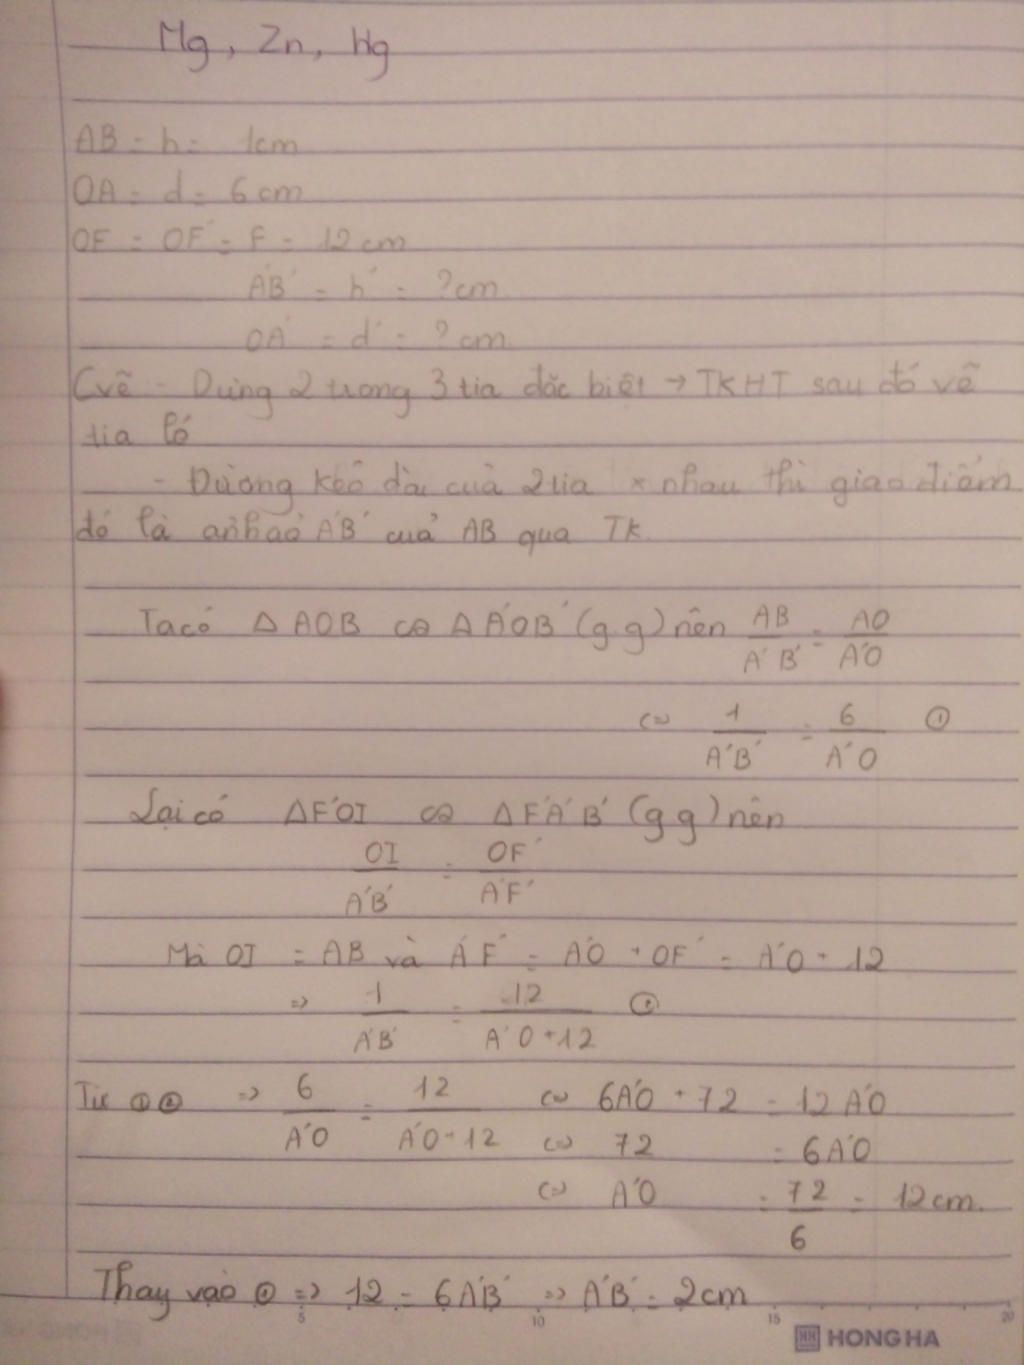 Mg, Zn, Hg
AB = h = 1cm
OA = d = 6cm
OF = OF' = F = 12cm
A'B' = h' = ?cm
OA' = d' = ?cm
Cvẽ - Dùng 2 trong 3 tia đặc biệt → TKHT sau đó vẽ
tia ló
- Đường kéo dài của 2 tia x nhau thì giao điểm
đó là ảnh ảo A'B' của AB qua TK.
Ta có Δ AOB ∽ Δ A'OB' (g.g) nên AB/A'B' = AO/A'O
<=> 1/A'B' = 6/A'O ①
Lại có ΔF'OI ∽ ΔF'A'B' (g g) nên
OI/A'B' = OF'/A'F'
Mà OI = AB và A'F' = A'O + OF' = A'O + 12
=> 1/A'B' = 12/A'O + 12 ②
Từ ① ② => 6/A'O = 12/A'O + 12 <=> 6A'O + 72 = 12A'O
<=> 72 = 6A'O
<=> A'O = 72/6 = 12cm.
Thay vào ① => 12 = 6A'B' => A'B' = 2cm
5 10 15 20
HH HONG HA